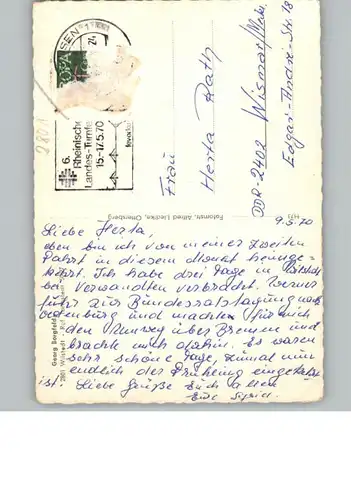 SEN 1
24
OPA
6.
Rheinische
Landes-Turnfe
15.-17.5.70
levarkus
280 f
Frau
Herta Rath
DDR-2402 Wismar/Meckl.
Edgar-André-Str. 18
Fotomstr. Alfred Liedtke, Ottersberg
H71
Georg Borgfeld
2801 Wilstedt
9.5.70
Liebe Herta,
eben bin ich von meiner zweiten
Fahrt in diesem Monat heimge-
kehrt. Ich habe drei Tage in
bei Verwandten verbracht. Werner
fuhr zur Bundesratstagung nach
Oldenburg und machte für mich
den Umweg über Bremen und
brachte mich dahin. Es waren
sehr schöne Tage, zumal nun
endlich der Frühling eingekehrt
ist. Liebe Grüße Euch allen
Eure Sigrid.